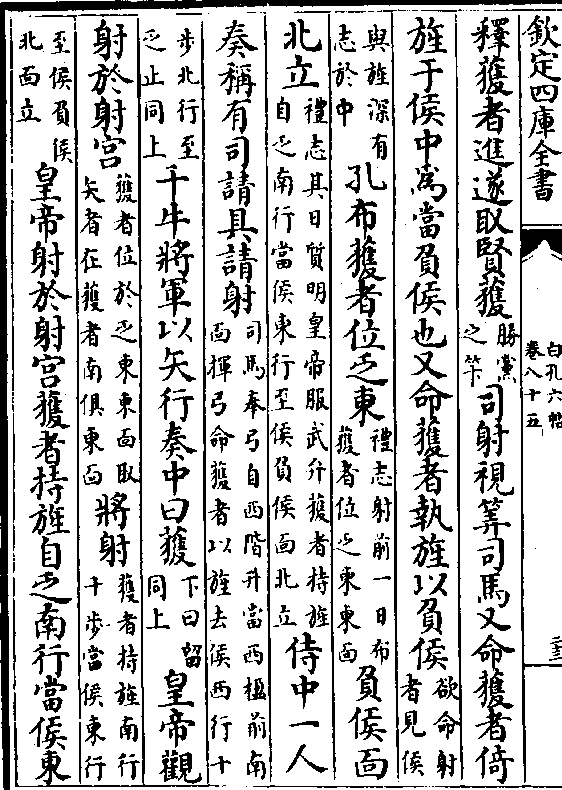 欽定四庫全書
白孔六帖
卷八十五
釋獲者進遂取賢獲勝黨之筭司射視筭司馬又命獲者倚
旌于侯中爲當負侯也又命獲者執旌以負侯欲命射者見侯
與旌深有志於中孔布獲者位乏東禮志射前一日布獲者位乏東東面負侯面
北立禮志其日質明皇帝服武弁獲者持旌自乏南行當侯東行至侯負侯面北立侍中一人
奏稱有司請具請射司馬奉弓自西階升當西楹前南面揮弓命獲者以旌去侯西行十
步北行至乏止同上千牛將軍以矢行奏中曰獲下曰留同上皇帝觀
射於射宮獲者位於乏東東面取矢者在獲者南俱東面將射獲者持旌南行十步當侯東行
至侯負侯北面立皇帝射於射宮獲者持旌自乏南行當侯東